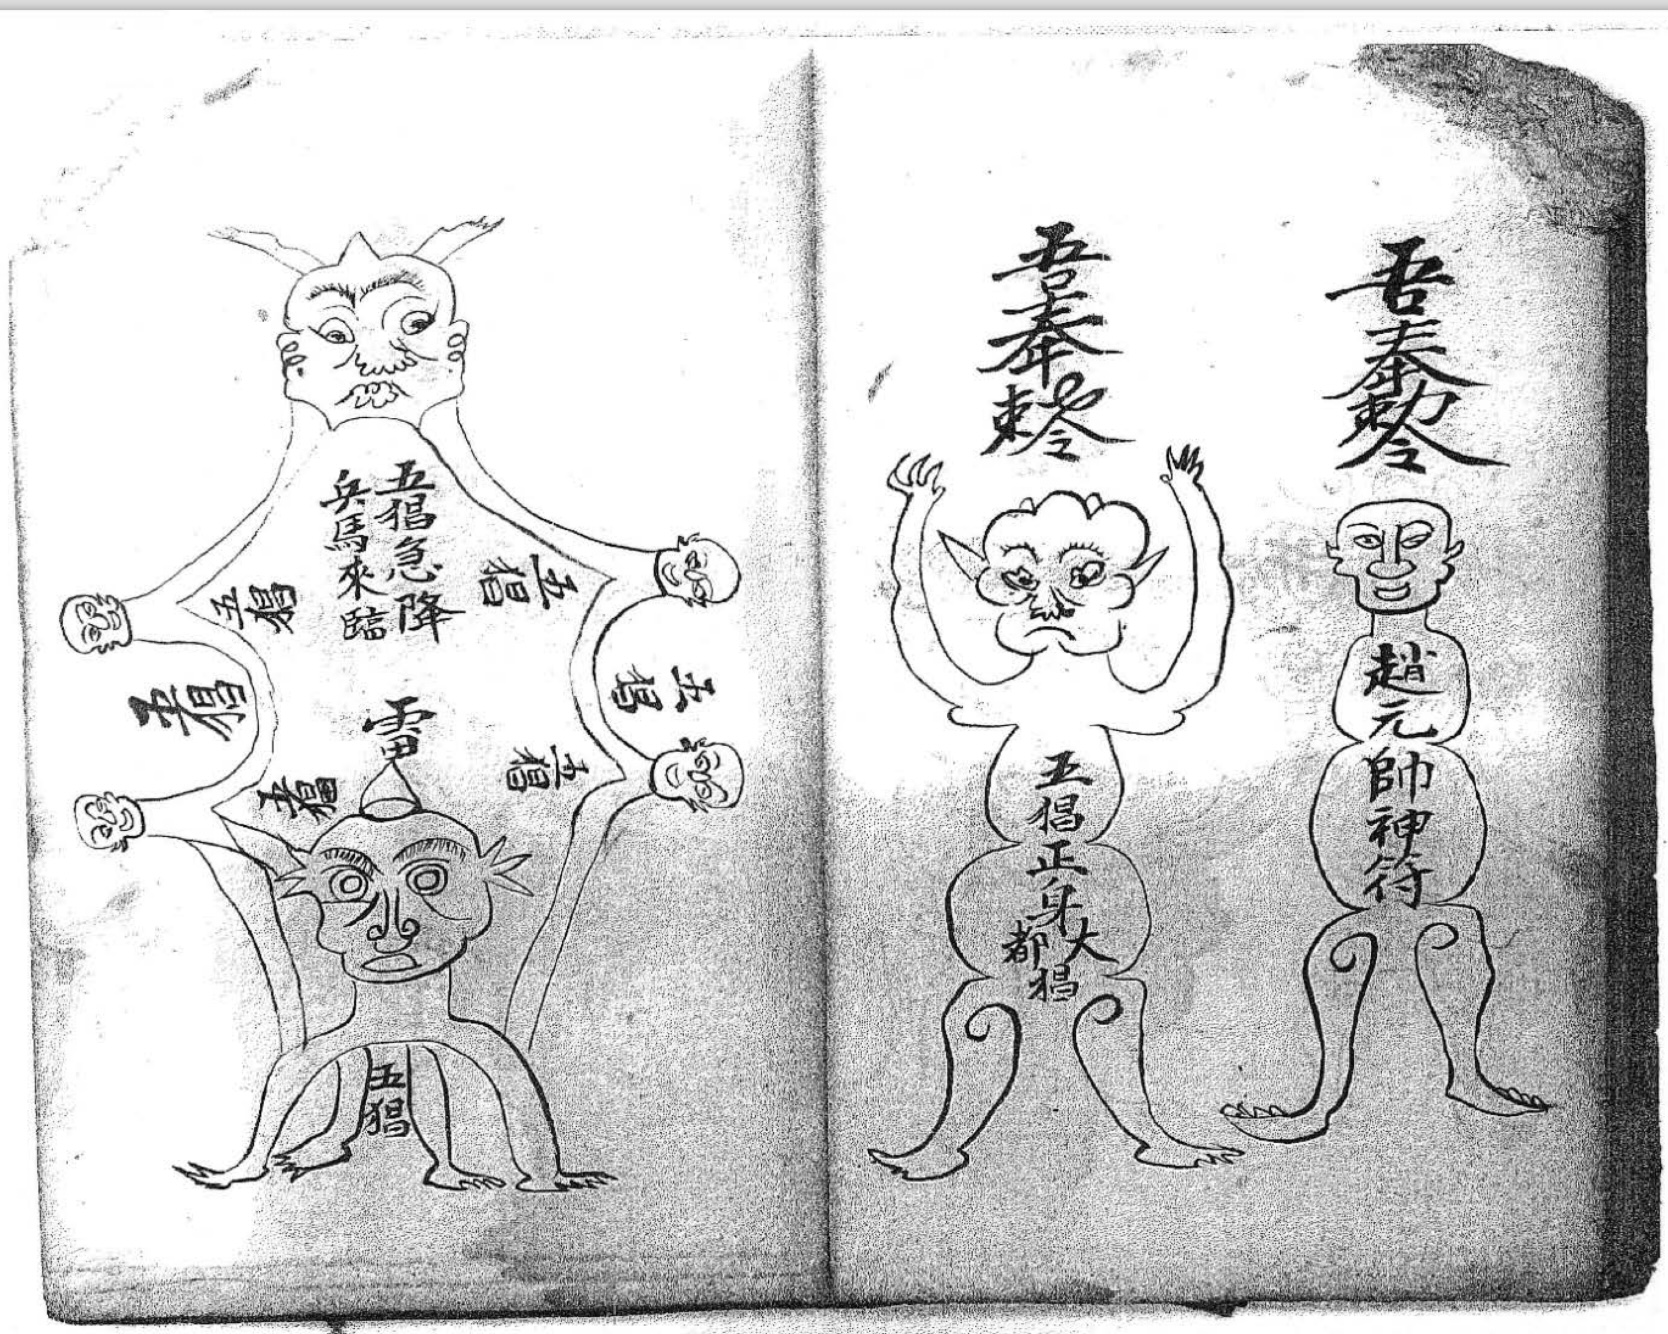 吾奉勅令
趙元帥神符
吾奉勅令
五猖正身
大都猖
五猖急降
兵馬來臨
五猖
五猖
五猖
五猖
五猖
五猖
雷
五猖